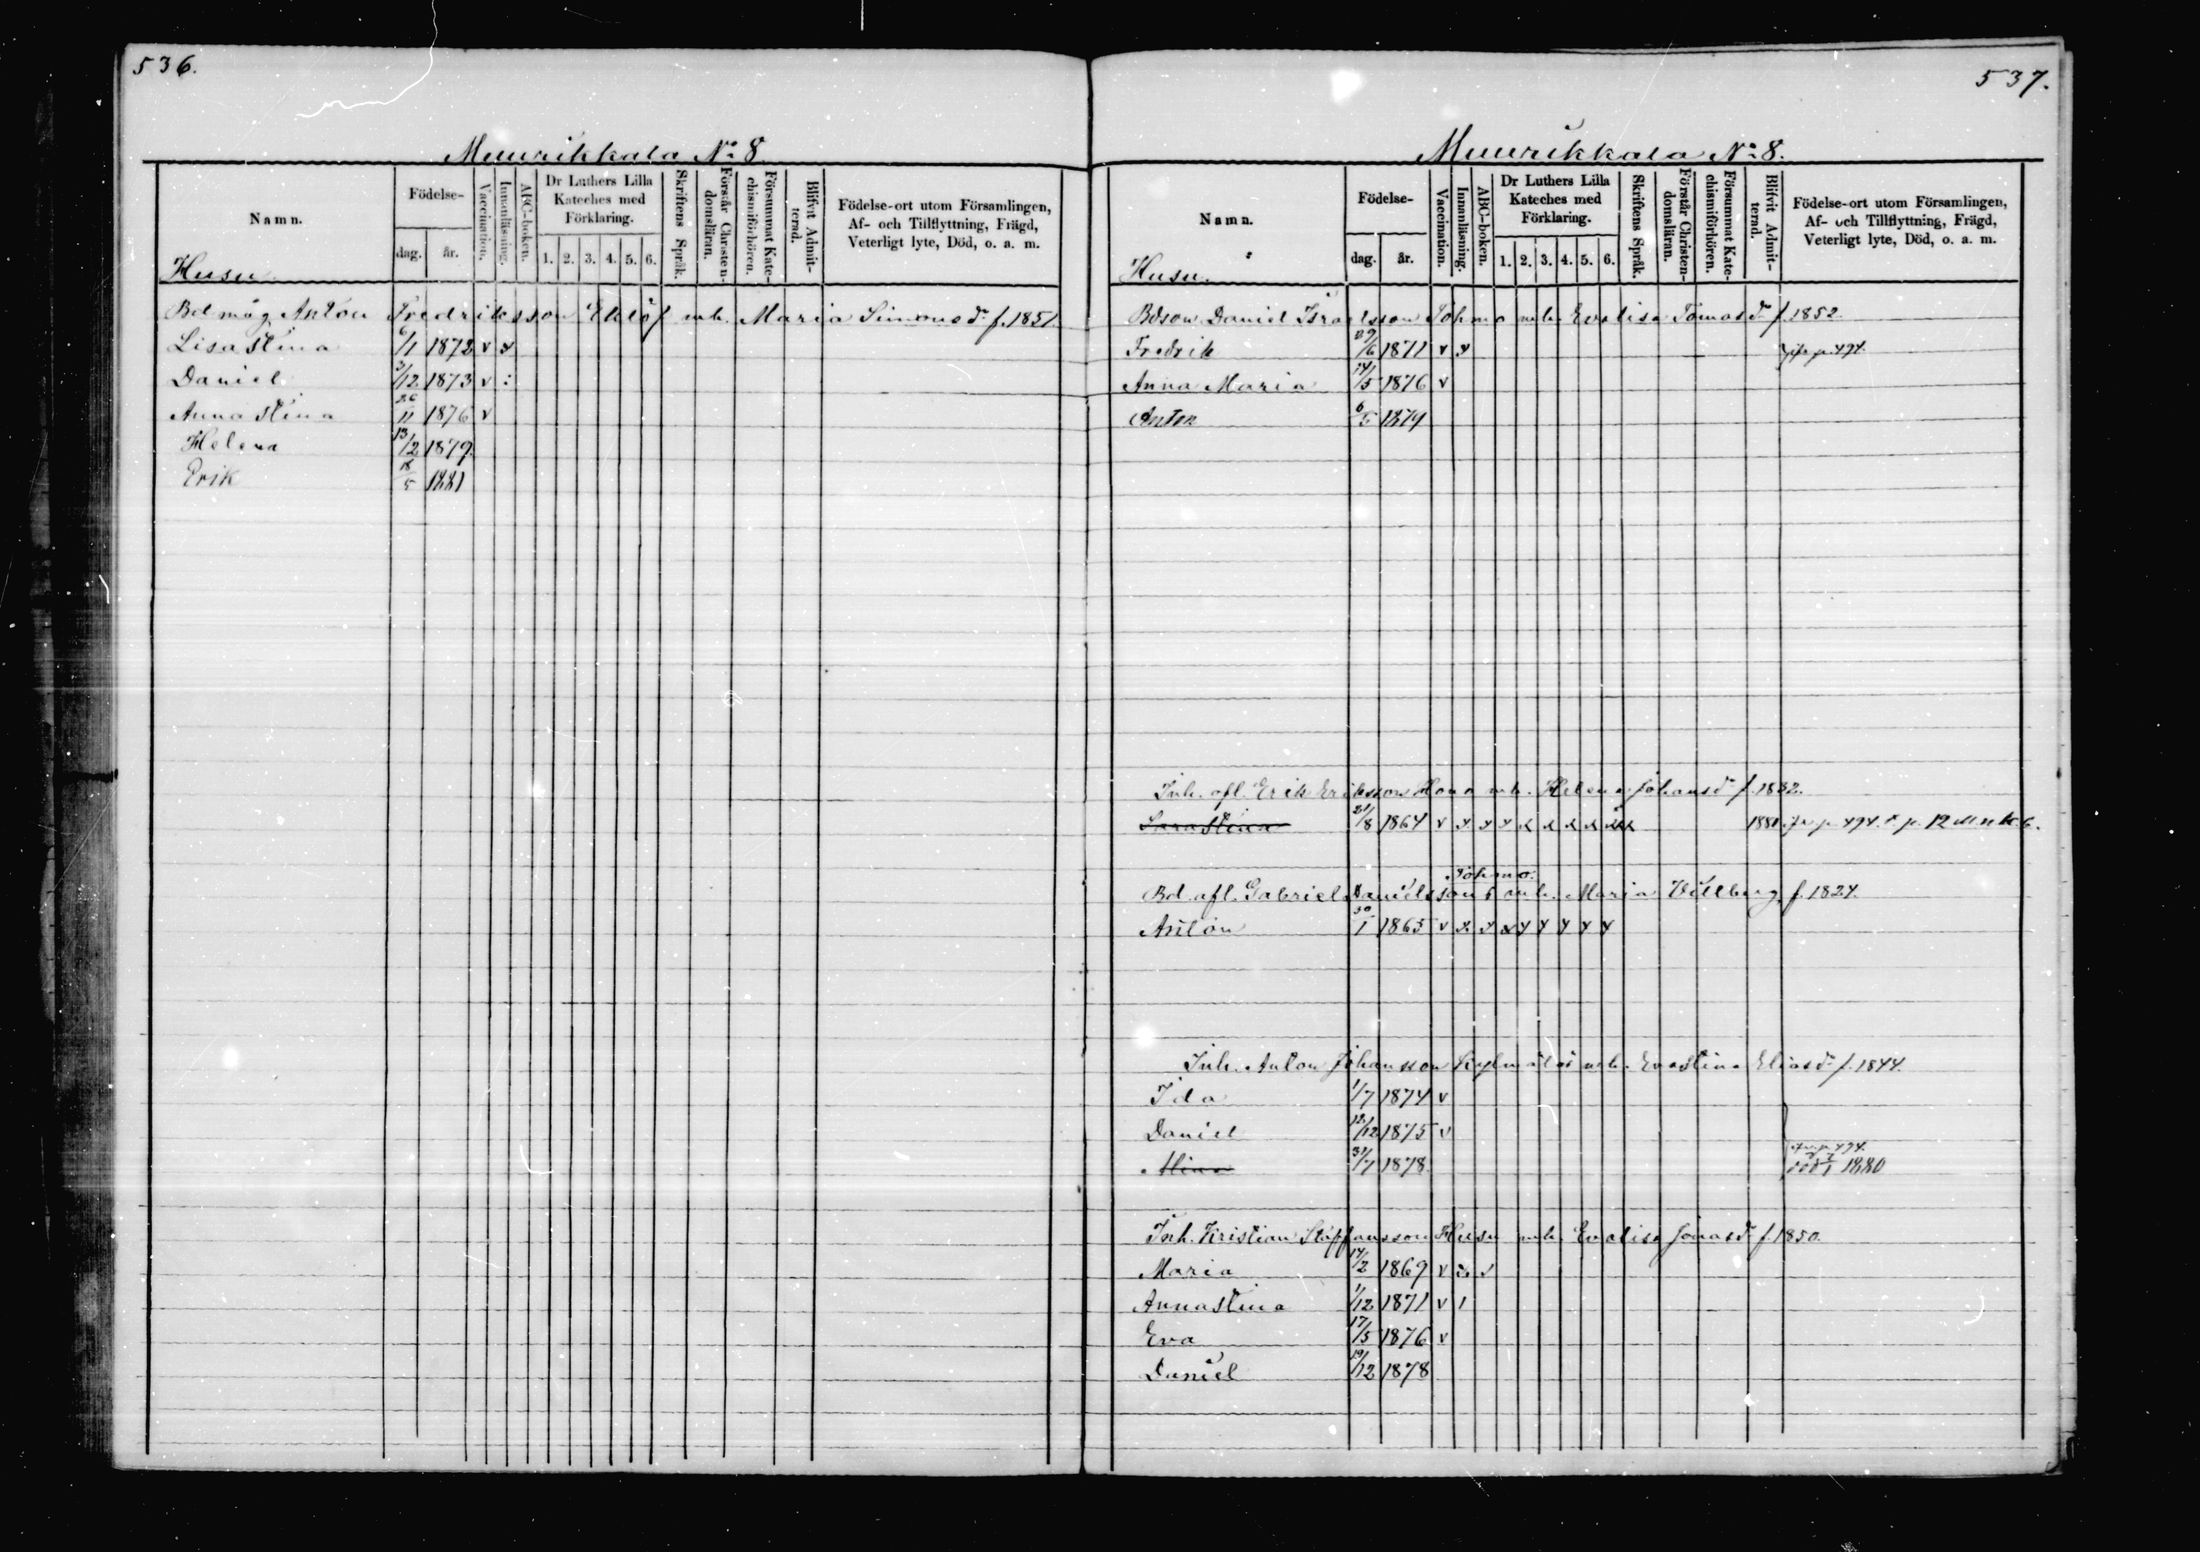 536.
Muurikkala No 8
Namn.
Födelse-
dag.
år.
Vaccination.
Innanläsning.
ABC-boken.
Dr Luthers Lilla
Kateches med
Förklaring.
1. 2. 3. 4. 5. 6.
Skriftens Språk.
Förstår Christen-
domsläran.
Försummat Kate-
chismiförhören.
Blifvit Admit-
terad.
Födelse-ort utom Församlingen,
Af- och Tillflyttning, Frägd,
Veterligt lyte, Död, o. a. m.
Husu
Bdmåg Anton Fredriksson Eklöf m h. Maria Simonsdr f. 1851.
Lisastina 6/1 1872 v x
Daniel 3/12 1873 v :
Annastina 26/11 1876 v
Helena 13/2 1879
Erik 18/5 1881
537.
Muurikkala No 8.
Namn.
Födelse-
dag.
år.
Vaccination.
Innanläsning.
ABC-boken.
Dr Luthers Lilla
Kateches med
Förklaring.
1. 2. 3. 4. 5. 6.
Skriftens Språk.
Förstår Christen-
domsläran.
Försummat Kate-
chismiförhören.
Blifvit Admit-
terad.
Födelse-ort utom Församlingen,
Af- och Tillflyttning, Frägd,
Veterligt lyte, Död, o. a. m.
Husu.
Bdson Daniel Israelsson Töhmo m h. Evalisa Tomasdr f. 1852.
Fredrik 29/6 1871 v x fr p. 494.
Anna Maria 14/5 1876 v
Anton 6/5 1879
Inh. afl. Erik Eriksson m h. Helena Johansdr f. 1832.
Sarastina 21/8 1864 v x x x x x x x 1880 fr p. 494. p. 12
Töhmo.
Bd afl. Gabriel Danielsson m h. Maria Villberg f. 1824.
Anton 30/1 1865 v x x x x x x x x
Inh. Anton Johansson m h. Evastina Eliasdr f. 1844.
Ida 1/7 1874 v
Daniel 12/12 1875 v
fr p. 494.
Mina 31/7 1878 död 1880
Inh. Kristian Staffansson Husu m h. Evalisa Jonasdr f. 1850.
Maria 14/2 1869 v x
Annastina 1/12 1871 v
Eva 17/5 1876 v
Daniel 19/12 1878